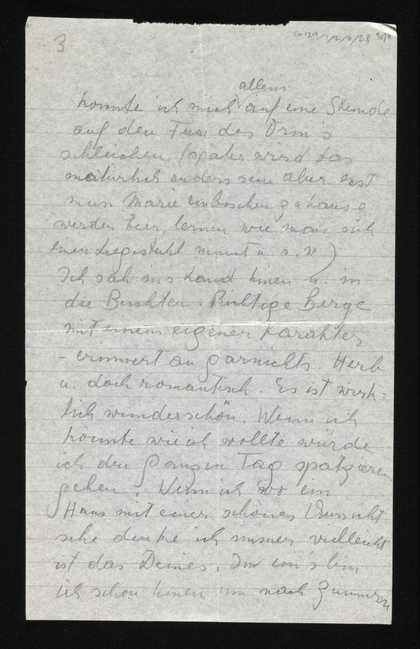 3
allein
konnte ich mich auf eine Stunde
auf den Fuss des Orm's
schleichen, (später wird das
natürlich anders sein aber erst
muss Marie ein bischen gehausig
werden hier, lernen wie man sich
einen nimmt u. s. w)
Ich sah in's Land hinein u. in
die Buchten. Richtige Berge
mit einem eigenen Karakter
- erinnert an garnichts. Herb
u. doch romantisch. Es ist wirk=
lich wunderschön. Wenn ich
könnte wie ich wollte würde
ich den ganzen Tag spazieren
gehen. Wenn ich wo ein
Haus mit einer schönen Aussicht
sehe denke ich immer vielleicht
ist das Deines. In ein's bin
ich schon hinein um nach Zimmern